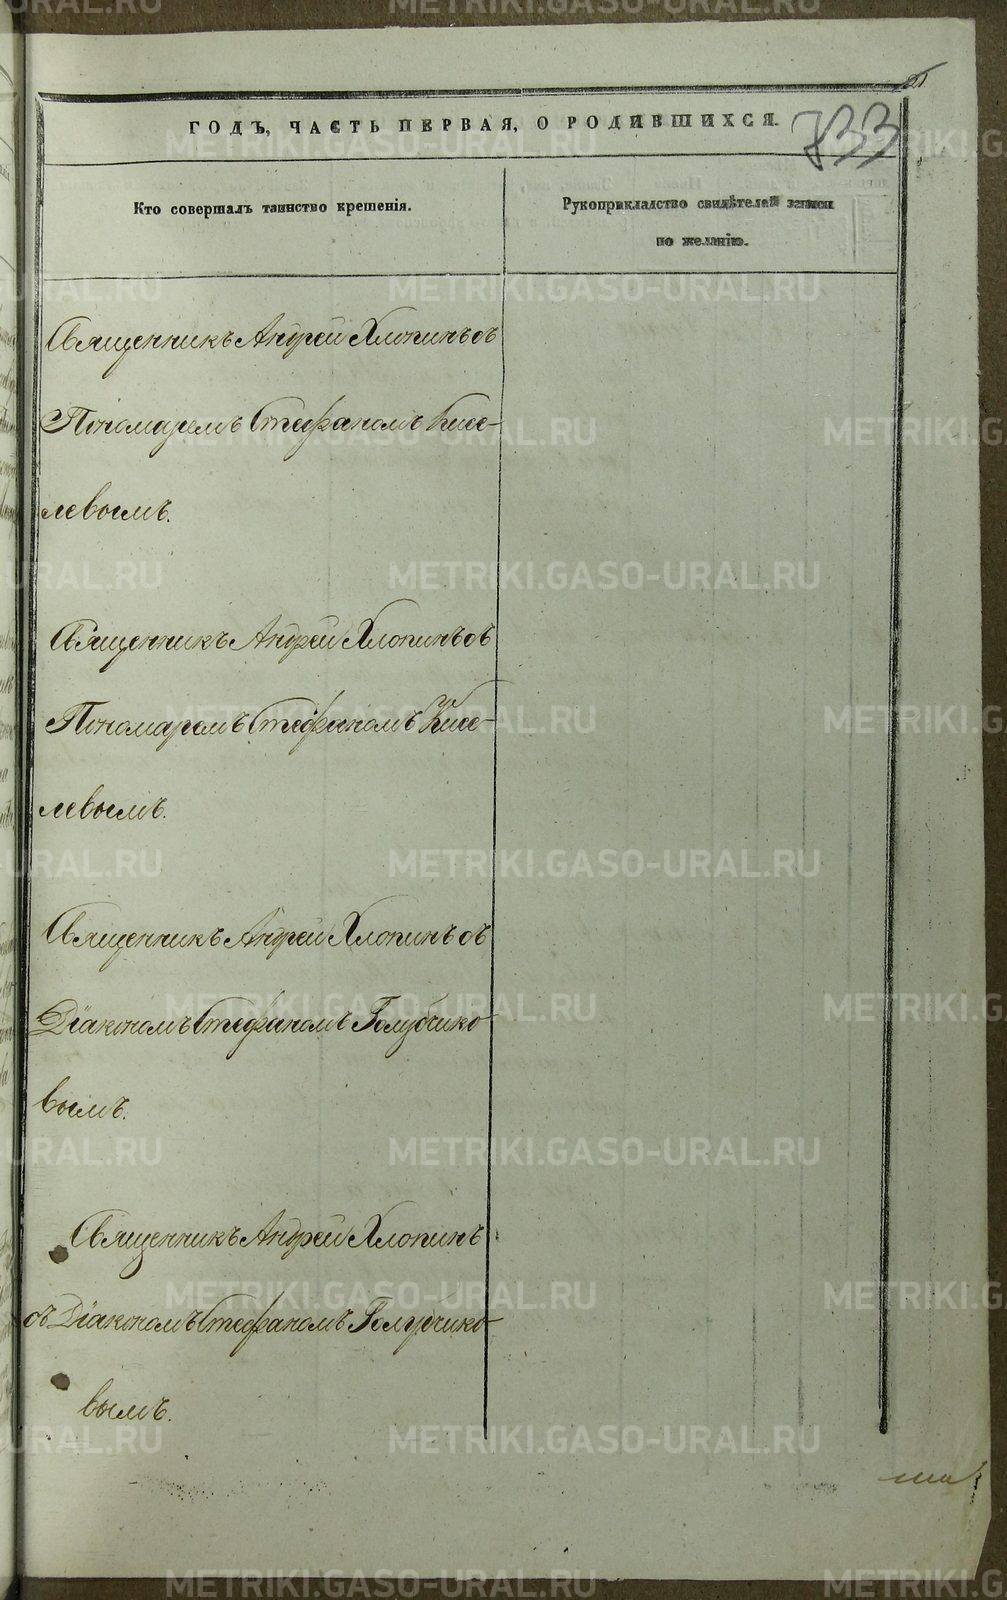 ГОДЪ, ЧАСТЬ ПЕРВАЯ, О РОДИВШИХСЯ.
733
Кто совершалъ таинство крещенія.
Рукоприкладство свидѣтелей записи
по желанію.
Священникъ Андрей Хлопинъ съ
Пономаремъ Стефаномъ Кисе-
левымъ.
Священникъ Андрей Хлопинъ съ
Пономаремъ Стефаномъ Кисе-
левымъ.
Священникъ Андрей Хлопинъ съ
Діакономъ Стефаномъ Голубчико
вымъ.
Священникъ Андрей Хлопинъ
съ Діакономъ Стефаномъ Голубчико
вымъ.
METRIKI.GASO-URAL.RU